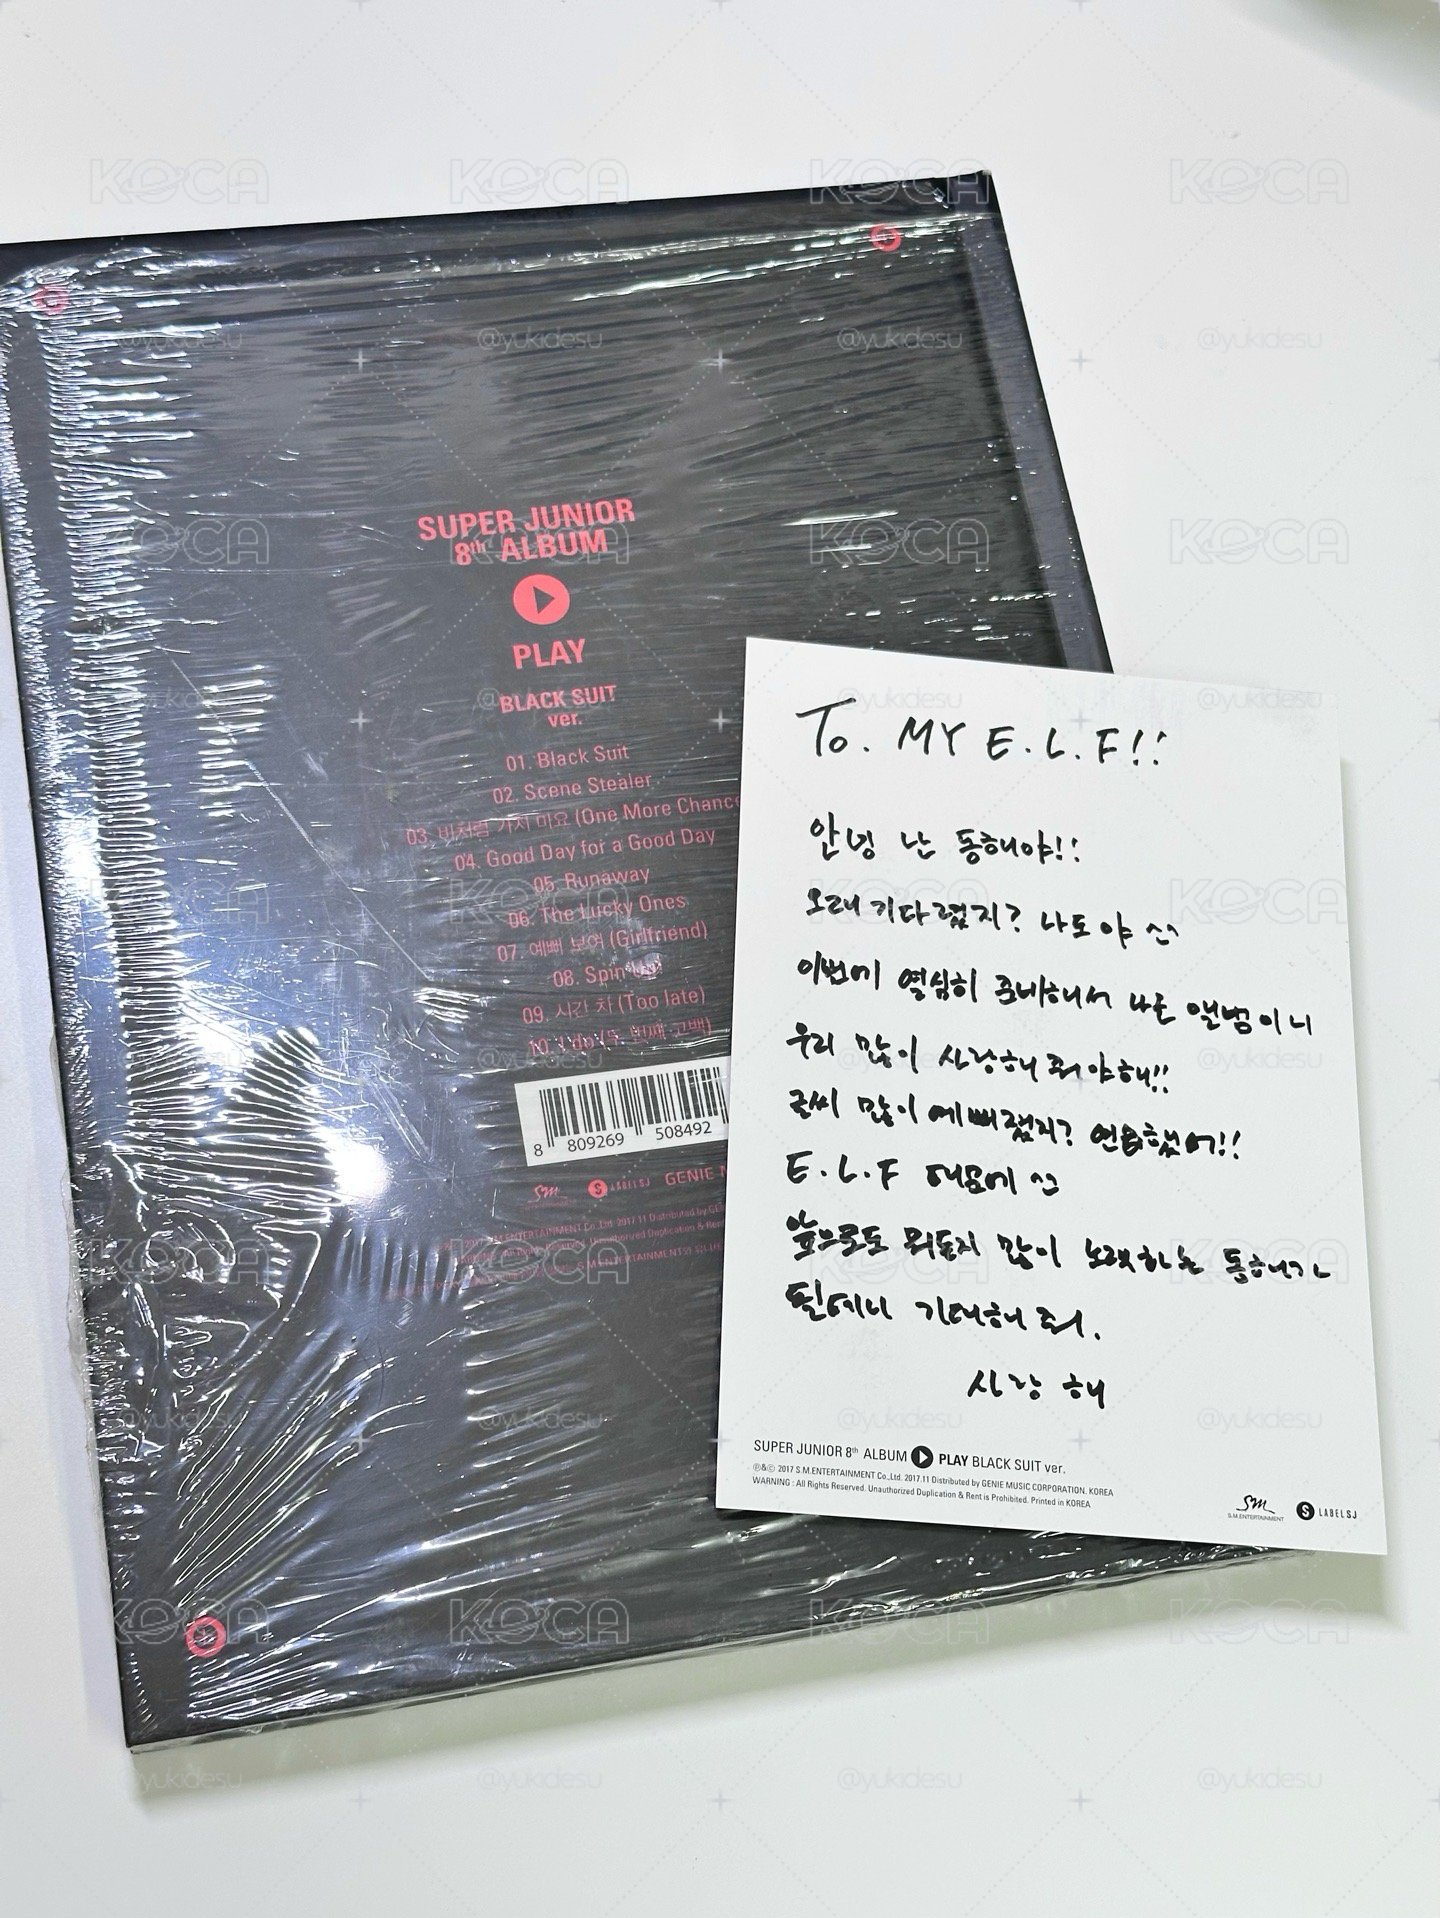 SUPER JUNIOR
8th ALBUM
PLAY
BLACK SUIT
ver.
01. Black Suit
02. Scene Stealer
03. 비처럼 가지 마요 (One More Chance
04. Good Day for a Good Day
05. Runaway
06. The Lucky Ones
07. 예뻐 보여 (Girlfriend)
08. Spin Up!
09. 시간 차 (Too late)
10. I do (두 번째 고백)
8 809269 508492
SM LABELSJ GENIE M
To. MY E.L.F!!
안녕 난 동해야!!
오래 기다렸지? 나도야 ^^
이번에 열심히 준비해서 나온 앨범이니
우리 많이 사랑해 줘야해!!
글씨 많이 예뻐졌지? 연습했어!!
E.L.F 때문에 ^^
앞으로도 뭐든지 많이 노력하는 동해가
될테니 기대해 줘.
사랑해
SUPER JUNIOR 8th ALBUM PLAY BLACK SUIT ver.
℗&© 2017 S.M.ENTERTAINMENT Co.,Ltd. 2017.11 Distributed by GENIE MUSIC CORPORATION. KOREA
WARNING : All Rights Reserved. Unauthorized Duplication & Rent is Prohibited. Printed in KOREA
SM
S.M.ENTERTAINMENT
S LABELSJ
KOCA
@yukidesu